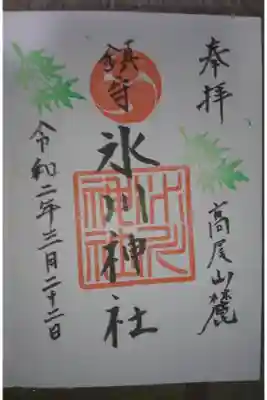 奉拝
高尾山麓
鎮守
氷川神社
令和二年三月二十二日
氷川神社